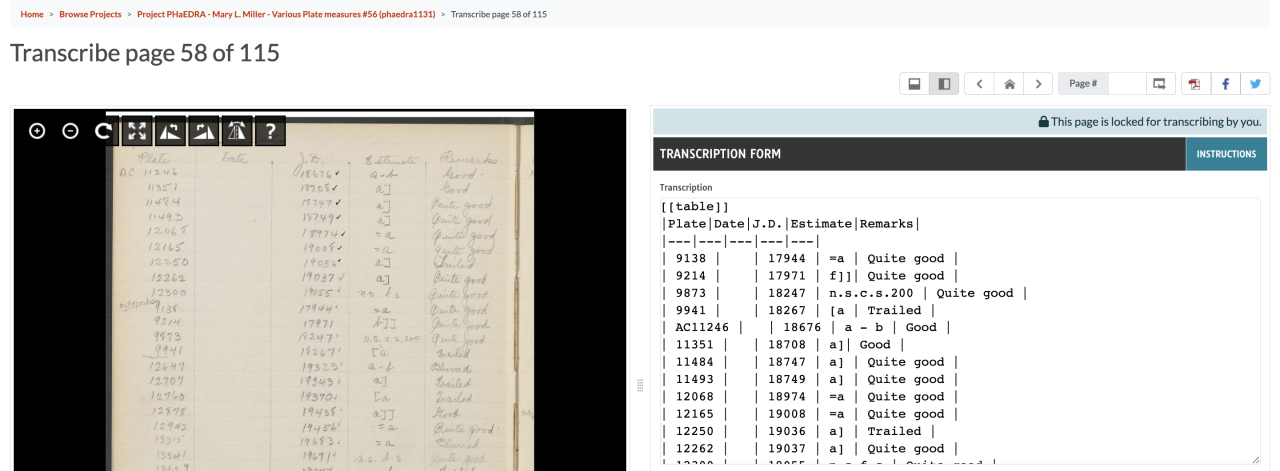 Home > Browse Projects > Project PHaEDRA - Mary L. Miller - Various Plate measures #56 (phaedra1131) > Transcribe page 58 of 115
Transcribe page 58 of 115
Page #
?
Plate Date J.D. Estimate Remarks
AC 11246 18676✓ a-b Good.
11351 18708✓ a] Good
11484 18747✓ a] Quite good
11493 18749✓ a] Quite good
12068 18974✓ =a Quite good
12165 19008✓ =a Quite good
12250 19036✓ a] Trailed
12262 19037✓ a] Quite good
12300 19055 n.s. f.s Quite good
9138 17944 =a Quite good
9214 17971 f]] Quite good
9873 18247 n.s.c.s.200 Quite good
9941 18267 [a Trailed
12647 19323 a-b Blurred
12707 19343 a] Trailed
12760 19370 [a Trailed
12878 19438 a]] Good
12942 19456 =a Quite good.
13315 19683 =a Blurred
13341 19691 n.s. f.s Quite good
This page is locked for transcribing by you.
TRANSCRIPTION FORM
INSTRUCTIONS
Transcription
[[table]]
|Plate|Date|J.D.|Estimate|Remarks|
|---|---|---|---|---|
| 9138 | | 17944 | =a | Quite good |
| 9214 | | 17971 | f]]| Quite good |
| 9873 | | 18247 | n.s.c.s.200 | Quite good |
| 9941 | | 18267 | [a | Trailed |
| AC11246 | | 18676 | a - b | Good |
| 11351 | | 18708 | a]| Good |
| 11484 | | 18747 | a] | Quite good |
| 11493 | | 18749 | a] | Quite good |
| 12068 | | 18974 | =a | Quite good |
| 12165 | | 19008 | =a | Quite good |
| 12250 | | 19036 | a] | Trailed |
| 12262 | | 19037 | a] | Quite good |
| 12300 | | 19055 | n.s.f.s | Quite good |